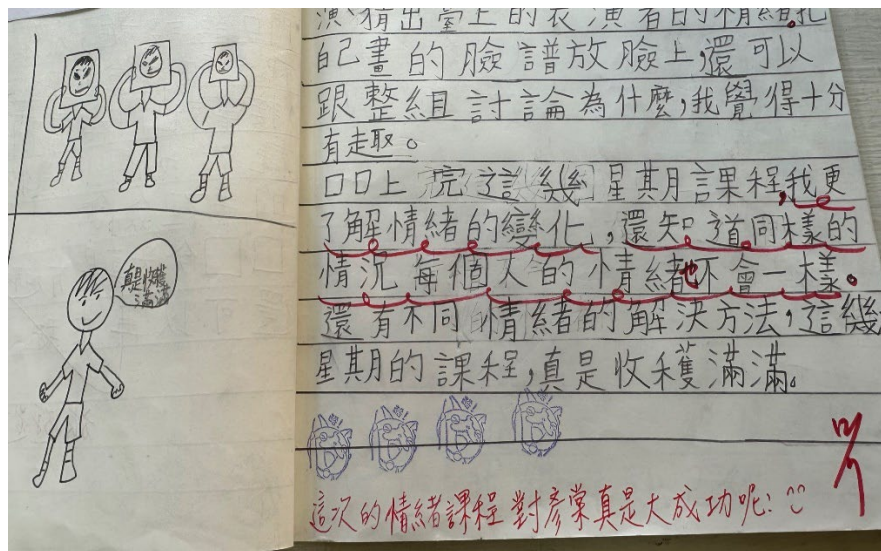 演,猜出臺上的表演者的情緒。把
自己畫的臉譜放臉上,還可以
跟整組討論為什麼,我覺得十分
有趣。
口口上完這幾星期課程,我更
了解情緒的變化,還知道同樣的
情況每個人的情緒也不會一樣。
還有不同情緒的解決方法,這幾
星期的課程,真是收穫滿滿。
真是收穫
滿滿
這次的情緒課程對彥棠真是大成功呢!